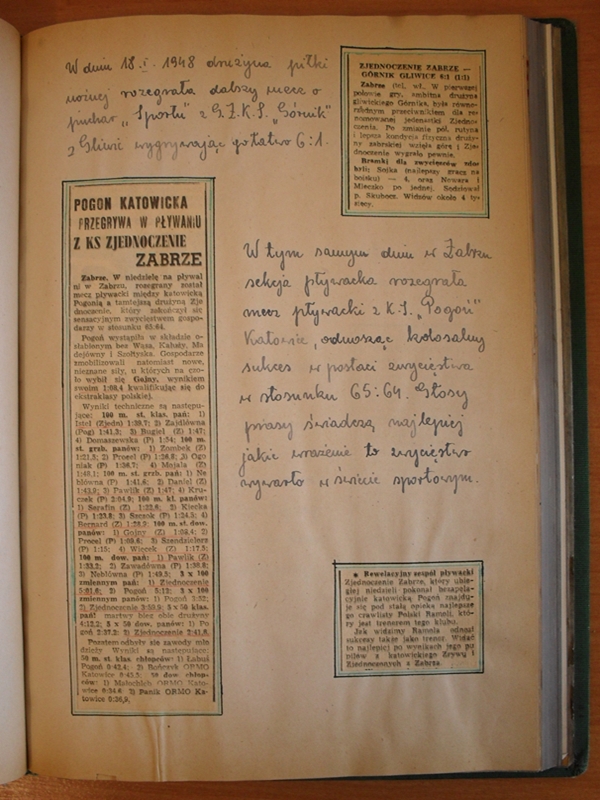 W dniu 18.I.1948 drużyna piłki
nożnej rozegrała dalszy mecz o
puchar „Sportu" z G.Z.K.S. „Górnik"
z Gliwic wygrywając go łatwo 6:1.
ZJEDNOCZENIE ZABRZE —
GÓRNIK GLIWICE 6:1 (1:1)
Zabrze (tel. wł. W pierwszej
połowie gry, ambitna drużyna
gliwickiego Górnika, była równo-
rzędnym przeciwnikiem dla re-
nomowanej jedenastki Zjedno-
czenia. Po zmianie pól, rutyna
i lepsza kondycja fizyczna druży-
ny zabrskiej wzięła górę i Zje-
dnoczenie wygrało pewnie.
Bramki dla zwycięzców zdo-
byli: Sojka (najlepszy gracz na
boisku) — 4, oraz Nowara i
Mieczko po jednej. Sędziował
p. Skubocz. Widzów około 4 ty-
sięcy.
POGOŃ KATOWICKA
PRZEGRYWA W PŁYWANIU
Z KS ZJEDNOCZENIE
ZABRZE
Zabrze. W niedzielę na pływal
ni w Zabrzu, rozegrany został
mecz pływacki między katowicką
Pogonią a tamtejszą drużyną Zje
dnoczenie, który zakończył się
sensacyjnym zwycięstwem gospo-
darzy w stosunku 65:64.
Pogoń wystąpiła w składzie o-
słabionym bez Wasa, Kaluży, Ma
dejówny i Szołtyska. Gospodarze
zmobilizowali natomiast nowe,
nieznane siły, u których na czo-
ło wybił się Gojny, wynikiem
swoim 1:08,4 kwalifikując się do
ekstraklasy polskiej.
Wyniki techniczne są następu-
jące: 100 m. st. klas. pań: 1)
Istel (Zjedn) 1:39,7; 2) Zajdlówna
(Pog) 1:41,3; 3) Bugiel (Z) 1:47;
4) Domaszewska (P) 1:54; 100 m.
st. grzb. panów: 1) Zombek (Z)
1:21,5; 2) Procel (P) 1:26,9; 3) Ogo
niak (P) 1:36,7; 4) Majala (Z)
1:48,1; 100 m. st. grzb. pań: 1) Ne
blówna (P) 1:41,6; 2) Daniel (Z)
1:43,9; 3) Pawlik (Z) 1:47; 4) Kru-
czek (P) 2:04,9; 100 m. kl. panów:
1) Serafin (Z) 1:22,6; 2) Kiecka
(P) 1:23,8; 3) Szczok (P) 1:24,5; 4)
Bernard (Z) 1:28,9; 100 m. st. dow.
panów: 1) Gojny (Z) 1:08,4; 2)
Procel (P) 1:09,6; 3) Szendzielorz
(P) 1:15; 4) Więcek (Z) 1:17,5;
100 m. dow. pań: 1) Pawlik (Z)
1:33,2; 2) Zawadówna (P) 1:38,8;
3) Neblówna (P) 1:49,5; 3 x 100
zmiennym pań: 1) Zjednoczenie
5:01,6; 2) Pogoń 5:12; 3 x 100
zmiennym panów: 1) Pogoń 3:52;
2) Zjednoczenie 3:59,9; 5 x 50 klas.
pań: martwy bieg obie drużyny
4:12,2; 5 x 50 dow. panów: 1) Po
goń 2:37,2; 2) Zjednoczenie 2:41,8.
Pozatem odbyły się zawody mło
dzieży Wyniki są następujące:
50 m. st. klas chłopców: 1) Labuś
Pogoń 0:42,4; 2) Bończyk ORMO
Katowice 0:45,5; 50 dow. chłop-
ców: 1) Małochleb ORMO Kato-
wice 0:34,6 2) Panik ORMO Ka-
towice 0:36,9.
W tym samym dniu w Zabrzu
sekcja pływacka rozegrała
mecz pływacki z K.S. „Pogoń"
Katowice, odnosząc kolosalny
sukces w postaci zwycięstwa
w stosunku 65:64. Głosy
prasy świadczą najlepiej
jakie wrażenie to zwycięstwo
wywarło w świecie sportowym.
● Rewelacyjny zespół pływacki
Zjednoczenie Zabrze, który ubie-
głej niedzieli pokonał bezapela-
cyjnie katowicką Pogoń znajdu-
je się pod stałą opieką najlepsze
go crawlisty Polski Ramoli, któ-
ry jest trenerem tego klubu.
Jak widzimy Ramola odnosi
sukcesy także jako trener. Widać
to najlepiej po wynikach jego pu
pilów z katowickiego Zrywu i
Zjednoczonych z Zabrza.